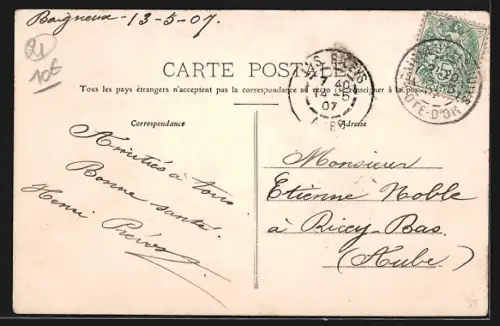 Baigneux - 13-5-07.
21
10€
CARTE POSTALE
Tous les pays étrangers n'acceptent pas la correspondance au recto (se renseigner à la poste)
RICEYS
17 40
14-5
07
AUBE
5
CÔTE-D'OR
Correspondance
Adresse
Amitiés à tous
Bonne santé.
Henri Prévost
Monsieur
Etienne Noble
à Ricey-Bas.
(Aube)